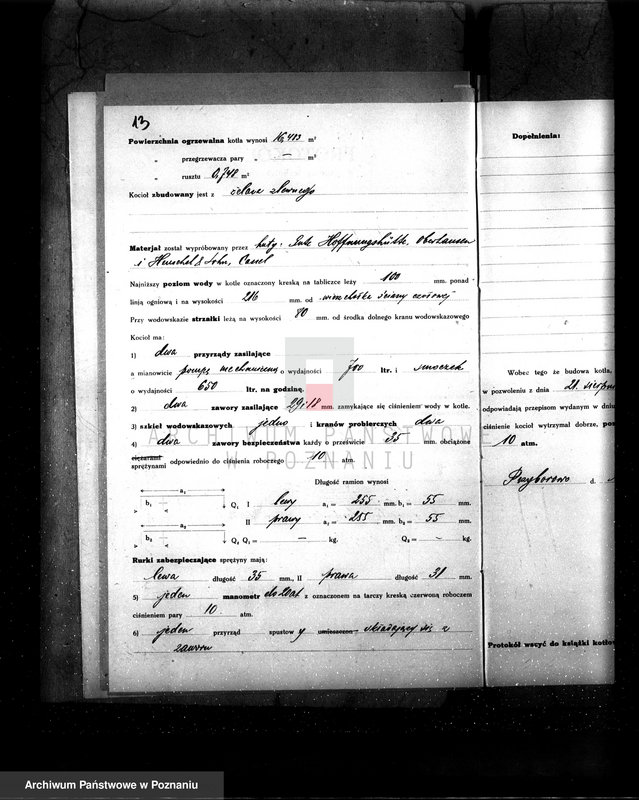 13
Powierzchnia ogrzewalna kotła wynosi 16,413 m²
„ przegrzewacza pary „ — m²
„ rusztu 0,748 m²
Kocioł zbudowany jest z żelaza zlewnego
Materjał został wypróbowany przez huty: Gute Hoffnungshütte, Oberhausen
i Henschel & Sohn, Cassel
Najniższy poziom wody w kotle oznaczony kreską na tabliczce leży 100 mm. ponad
linją ogniową i na wysokości 216 mm. od wierzchołka ściany czołowej
Przy wodowskazie strzałki leżą na wysokości 80 mm. od środka dolnego kranu wodowskazowego
Kocioł ma:
1) dwa przyrządy zasilające
a mianowicie pompę mechaniczną o wydajności 700 ltr. i smoczek
o wydajności 650 ltr. na godzinę.
2) dwa zawory zasilające 29 i 18 mm. zamykające się ciśnieniem wody w kotle.
3) szkieł wodowskazowych jedno i kranów probierczych dwa
4) dwa zawory bezpieczeństwa każdy o prześwicie 35 mm. obciążone
ciężarami
sprężynami odpowiednio do ciśnienia roboczego 10 atm.
Długość ramion wynosi
a₁
b₁ Q₁ I lewy a₁ = 255 mm. b₁ = 55 mm.
a₂ II prawy a₂ = 255 mm. b₂ = 55 mm.
b₂ Q₂ Q₁ = — kg. Q₂ = — kg.
Rurki zabezpieczające sprężyny mają:
lewa długość 35 mm., II prawa długość 31 mm.
5) jeden manometr do 20 at z oznaczonem na tarczy kreską czerwoną roboczem
ciśnieniem pary 10 atm.
6) jeden przyrząd spustowy umieszczon układający się z
zaworu
Dopełnienia:
Wobec tego że budowa kotła,
w pozwoleniu z dnia 21. sierpnia
odpowiadają przepisom wydanym w dniu
ciśnienie kocioł wytrzymał dobrze,
10 atm.
Przyborowo d.
Protokół wszyć do książki kotłow
ARCHIWUM PAŃSTWOWE
W POZNANIU
Archiwum Państwowe w Poznaniu